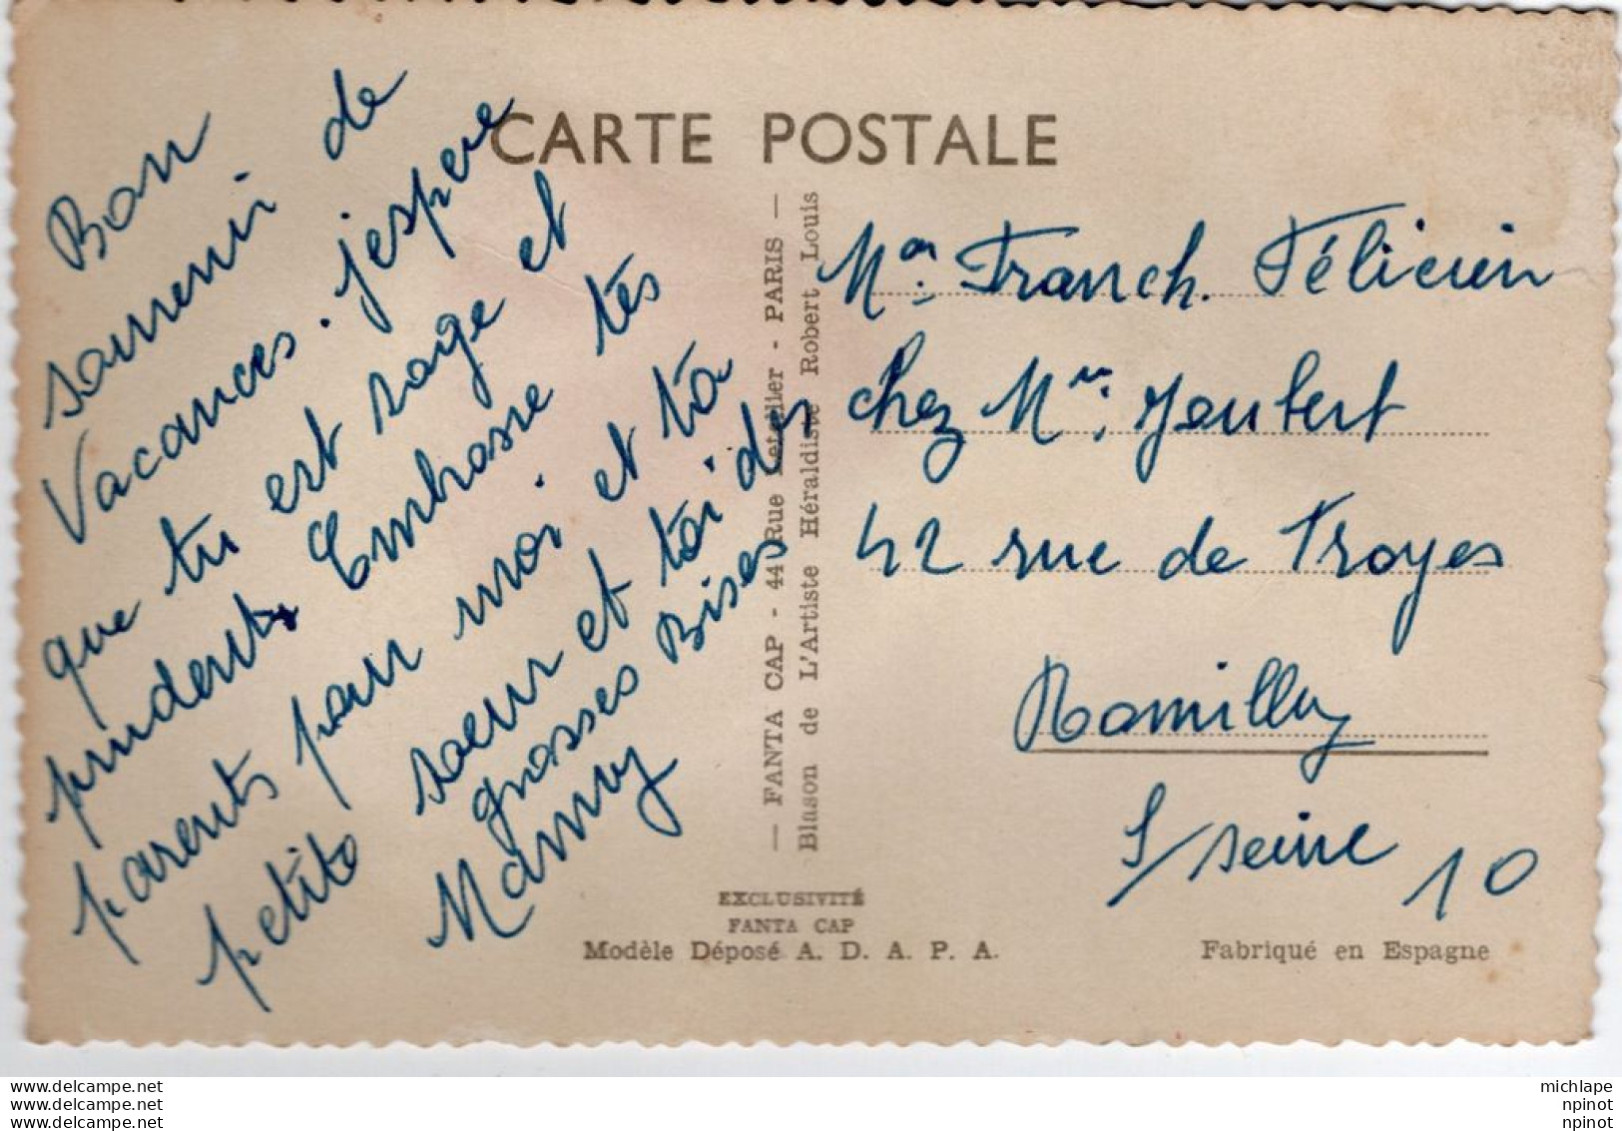 CARTE POSTALE
Bon
souvenir de
Vacances. j'espere
que tu est sage et
prudent. Embrasse tes
parents pour moi. et ta
petite soeur et toi des
grosses Bises
Mamy
— FANTA CAP - 44 Rue Letellier - PARIS —
Blason de L'Artiste Héraldiste Robert Louis
Mon. Franch. Félicien
chez Mr. Joubert
42 rue de Troyes
Romilly
S/seine 10
EXCLUSIVITÉ
FANTA CAP
Modèle Déposé A. D. A. P. A.
Fabriqué en Espagne
delcampe.net
delcampe.net
delcampe.net
michlape
npinot
npinot